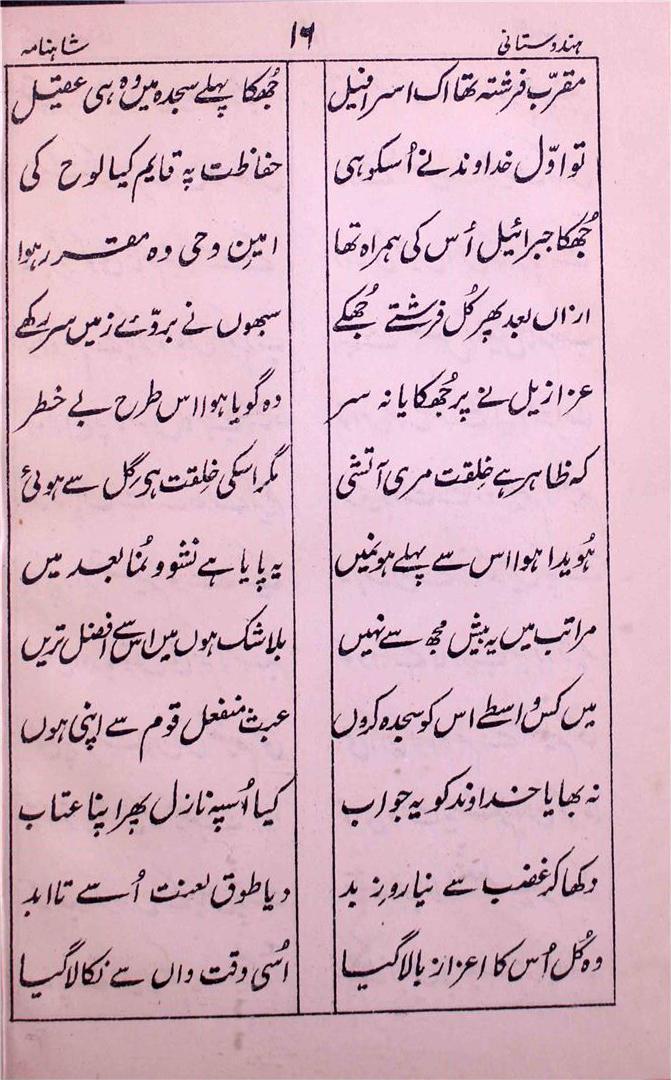 ہندوستانی ۱۶ شاہنامہ
مقرّب فرشتہ تھا اک اسرافیل جُھکا پہلے سجدہ میں وہ ہی عقیل
تو اوّل خداوند نے اُسکو ہی حفاظت پہ قایم کیا لوح کی
جُھکا جبرائیل اُس کی ہمراہ تھا امینِ وحی وہ مقرر ہوا
ازاں بعد پھر کُل فرشتے جُھکے سبھوں نے بروئے زمیں سر رکھے
عزازیل نے پر جُھکایا نہ سر وہ گویا ہوا اس طرح بے خطر
کہ ظاہر ہے خلقت مری آتشی مگر اسکی خلقت ہی گل سے ہوئی
ہُویدا ہوا اس سے پہلے ہونمیں یہ پایا ہے نشو و نُما بعد میں
مراتب میں یہ بیش مجھ سے نہیں بلاشک ہوں میں اس سے افضل تریں
میں کس واسطے اس کو سجدہ کروں عبث منفعل قوم سے اپنی ہوں
نہ بھایا خداوند کو یہ جواب کیا اُسپہ نازل پھر اپنا عتاب
دکھا کر غضب سے نیا روزِ بد دیا طوق لعنت اُسے تا ابد
وہ کُل اُس کا اعزاز بالا گیا اُسی وقت واں سے نکالا گیا